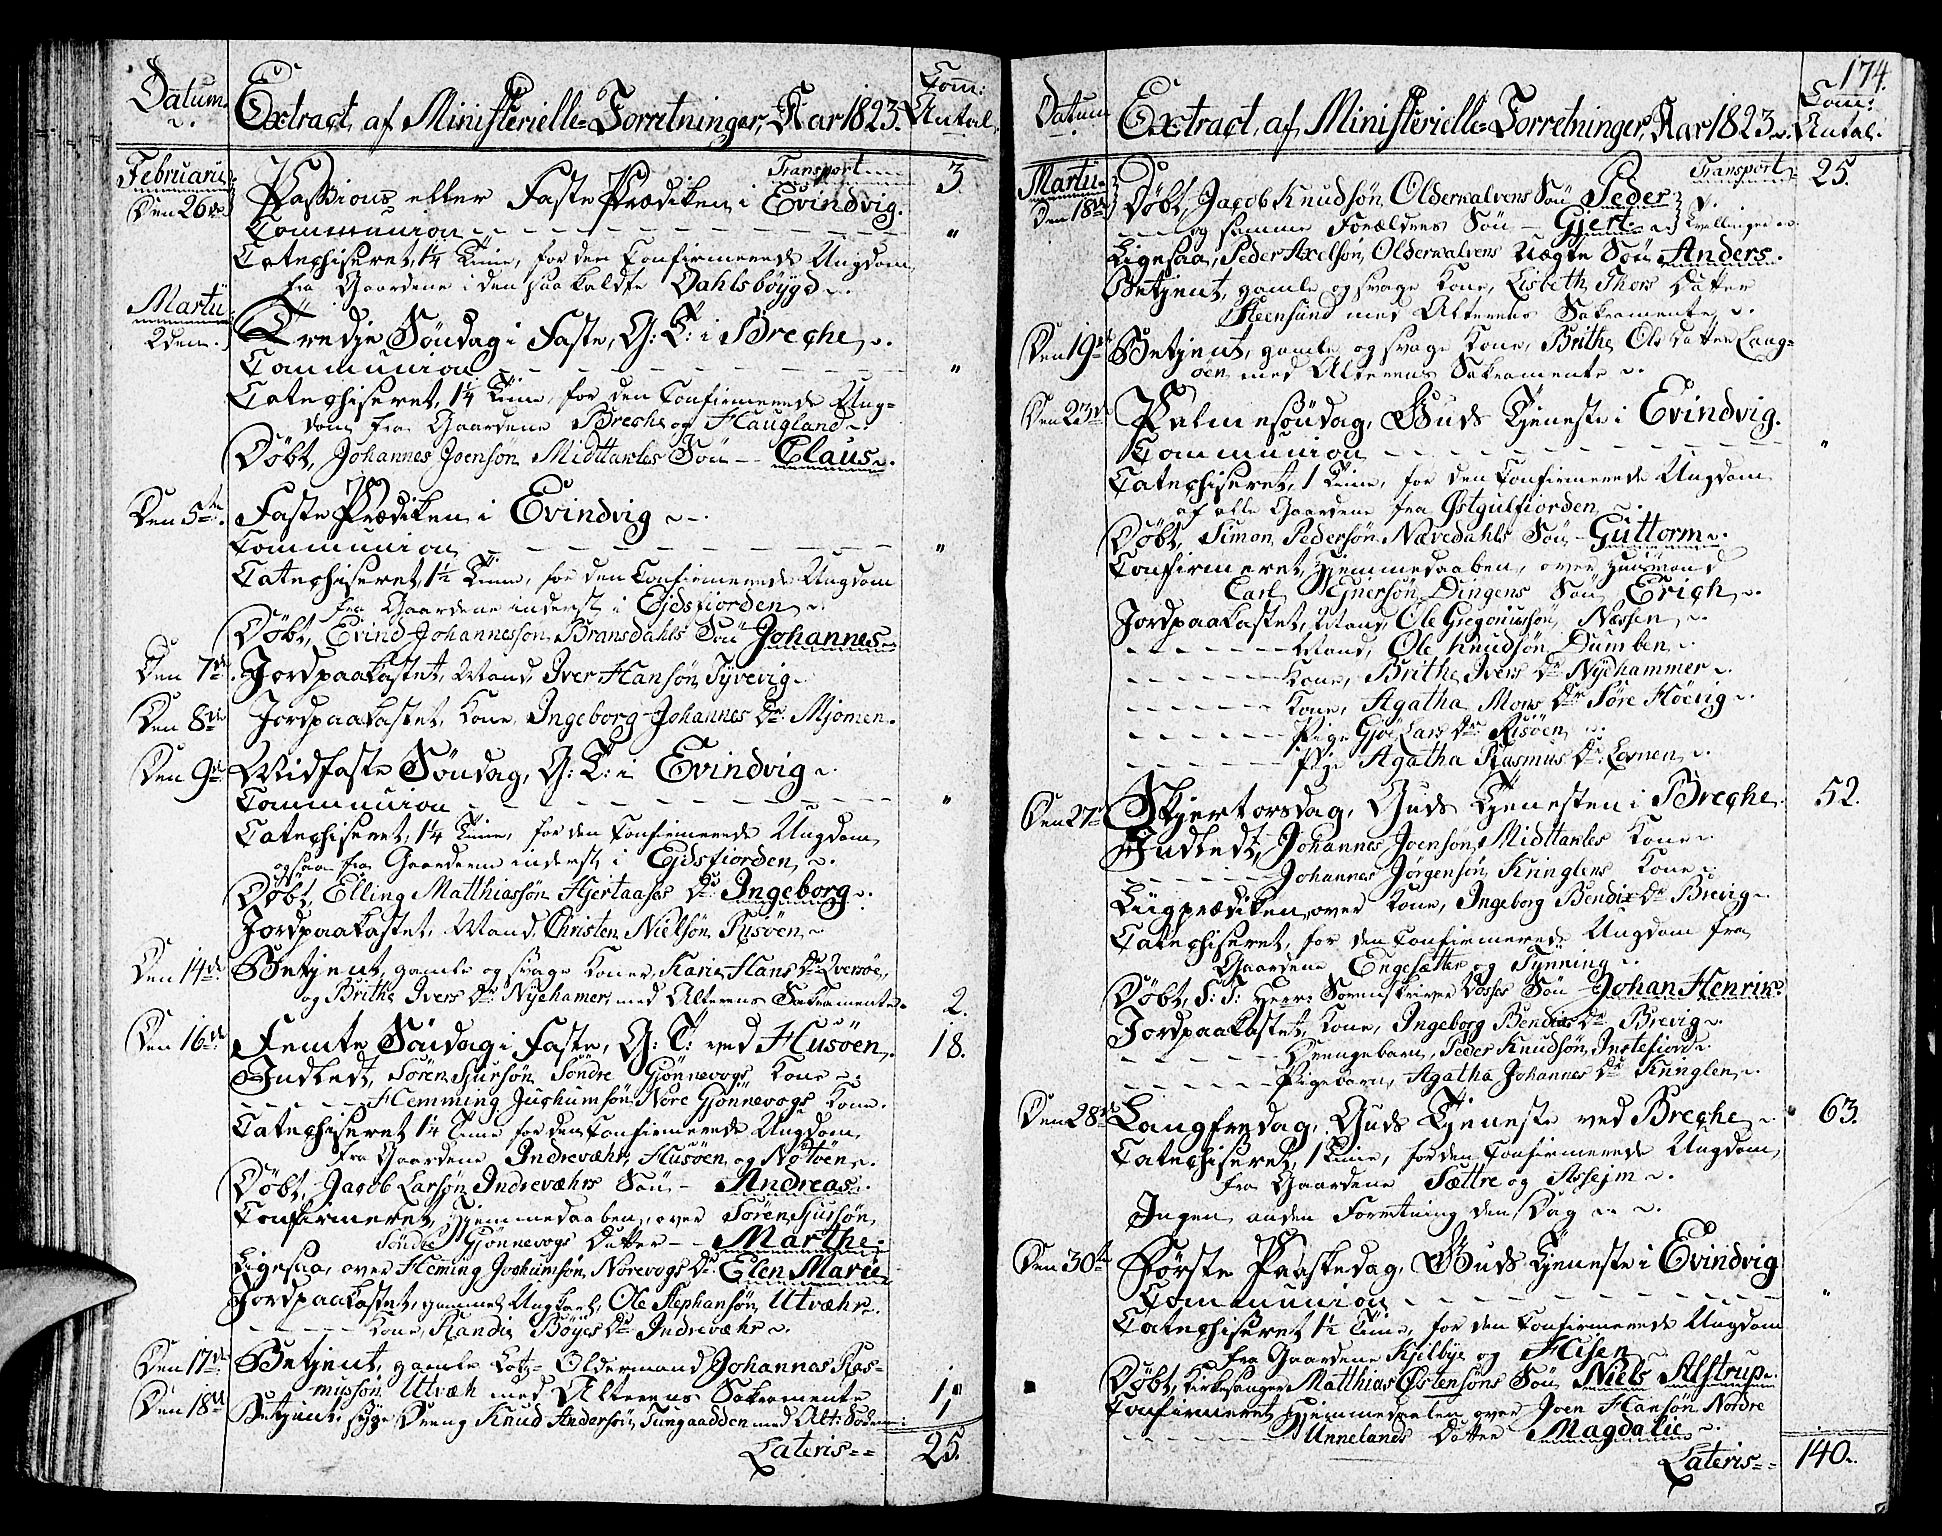 Datum. Extract, af Ministerielle=Forretninger, Aar 1823. Com: Antal.
Februarii Transport 3.
Den 26de Passions eller Faste Prædiken i Evindvig.
Communion "
Catechiseret, 1¼ Time, for den Confirmerede Ungdom
fra Gaardene i den saa kaldte Dahlsböygd
Martii
2den. Tredje Söndag i Faste, G: T: i Breche
Communion "
Catechiseret, 1¼ Time, for den Confirmerede Ung=
dom fra Gaardene Breche og Haugland
Döbt, Johannes Joensön Midttanles Sön -- Claus
Den 5te Faste Prædiken i Evindvig
Communion "
Catechiseret, 1½ Time, for den Confirmerede Ungdom
fra Gaardene inderst i Ejdsfiorden
Döbt, Evind Johannessön Bransdahls Sön Johannes
Den 7de Jordpaakastet, Mand, Iver Hansön Tyvevig
Den 8de Jordpaakastet, Kone, Ingeborg Johannes Dr Mjømen.
Den 9de Midfaste Söndag, G: T: i Evindvig
Communion "
Catechiseret, 1¼ Time, for den Confirmerede Ungdom
ogsaa fra Gaardene inderst i Ejdsfiorden
Döbt, Elling Matthiassön Hjertaases Dr Ingeborg
Jordpaakastet, Mand Christen Nielsön Risöen
Den 14de Betjent, gamle og svage Koner, Karie Hans Dr Qversöe,
og Brithe Ivers Dr Nyehamer, med Alterens Sakramente. 2.
Den 16de Femte Söndag i Faste, G: T: ved Husöen. 18.
Indledt, Sören Siursön Söndre Gjönnevogs Kone
Hemming Juchumsön Nore Gjönnevogs Kone.
Catechiseret 1¼ Time for den Confirmerede Ungdom,
fra Gaardene Indrevæhr, Husöen og Nötöen
Döbt, Jacob Larsön Indrevæhrs Sön - Andreas
Confirmeret Hjemmedaaben, over Sören Siursön
Söndre Gjönnevogs Datter -- Marthe
Ligesaa, over Heming Jochumsön Norevogs Dr Elen Marie
Jordpaakastet, gammel Ungkarl, Ole Stephansön Utvæhr.
Kone, Randi Böyes Dr Indrevæhr
Den 17de Betjent, gamle Lots-Oldermand Johannes Ras=
mussön Utvæh med Alterens Sakramente 1,
Den 18de Betjent syge Dreng Knud Andersön Tungaadden med Alt: Sodem: 1
Lateris= 25.
174.
Datum Extract, af Ministerielle=Forretninger, Aar 1823. Com: Antal.
Martii Transport 25.
Den 18de Döbt, Jacob Knudsön Olderkalvens Sön Peder
og samme Forældres Sön - Gjert. Tvillinger
Ligesaa, Peder Axelsön Olderkalvens Uægte Sön Anders.
Betjent, gamle og svage Kone, Lisbeth Thors Datter
Steensund med Alterens Sakramente
Den 19de Betjent, gamle og svage Kone, Brithe Ols Datter Lang=
öen med Alterens Sakramente
Den 23de Palmesöndag, Guds Tjeneste i Evindvig.
Communion "
Catechiseret, 1 Time, for den Confirmerede Ungdom
af alle Gaardene fra Østgulfiorden
Döbt, Simon Pedersön Nævedahls Sön - Guttorm
Confirmeret, Hjemmedaaben, over Huusmand
Carl Ejnersön Dingens Sön Erich
Jordpaakastet, Mand, Ole Gregoriussön Næssen
Mand, Ole Knudsön Dumben
Kone, Brithe Ivers Dr Nyehammer
Kone, Agatha Mons Dr Søre Höevig
Pige Gjöe Lars Dr Risöen
Pige Agatha Rasmus Dr Losnen
Den 27de Skjertorsdag, Guds Tjenesten i Breche 52.
Indledt, Johannes Joensön Midttanles Kone
Johannes Jörgensön Kringlens Kone
Liigprædiken over Kone, Ingeborg Bendix Dr Brevig
Catechiseret, for den Confirmerede Ungdom fra
Gaardene Engesætter og Tynning
Döbt, S: T: Herr: Sorenskriver Dosses Sön Johan Henrik
Jordpaakastet, Kone, Ingeborg Bendix Dr Brevig
Drengebarn, Peder Knudsön Instefiord
Pigebarn, Agatha Johannes Dr Kringlen
Den 28de Langfredag, Guds Tjeneste ved Breche 63.
Catechiseret, 1 Time, for den Confirmerede Ungdom,
fra Gaardene Sættre og Assejm
Ingen anden Forretning den Dag
Den 30te Förste Paaskedag, Guds Tjeneste i Evindvig
Communion "
Catechiseret 1½ Time, for den Confirmerede Ungdom
fra Gaardene Kjelbye og Hisen
Döbt, Kirkesanger Matthias Østensöns Sön Niels Alstrup
Confirmeret Hjemmedaaben over Joen Hansön Nordre
Unnelands Datter Magdalie
Lateris= 140